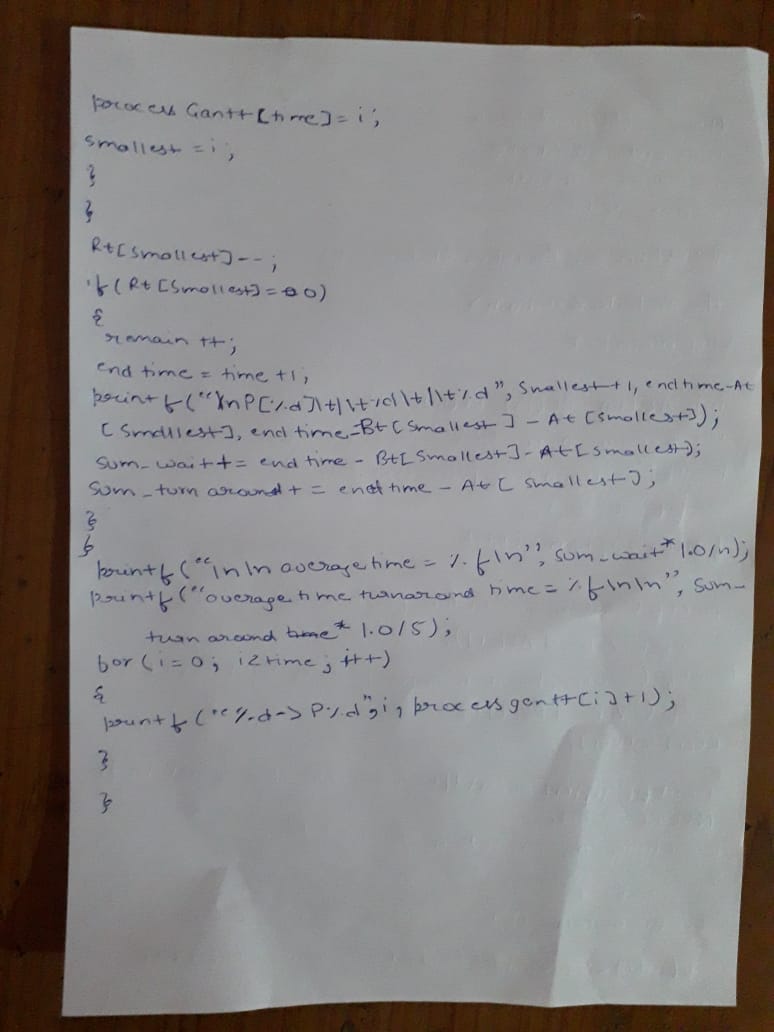 process Gantt[time]= i;
smallest = i;
}
}
Rt[smallest]--;
if(Rt[Smallest]==0)
{
remain ++;
end time = time +1;
printf("\nP[%d]\t|\t%d\t|\t%d", Smallest+1, endtime-At
[Smallest], end time-Bt[Smallest]-At[Smallest]);
Sum_wait+= end time - Bt[Smallest]-At[Smallest];
Sum_turn around+= end time - At[Smallest];
}
}
printf("\n\n average time = %f\n", Sum_wait*1.0/n);
printf("average time turnaround time = %f\n\n", Sum_
turn around time*1.0/5);
for(i=0; i<time; i++)
{
printf("%d->P%d",i, process gantt[i]+1);
}
}